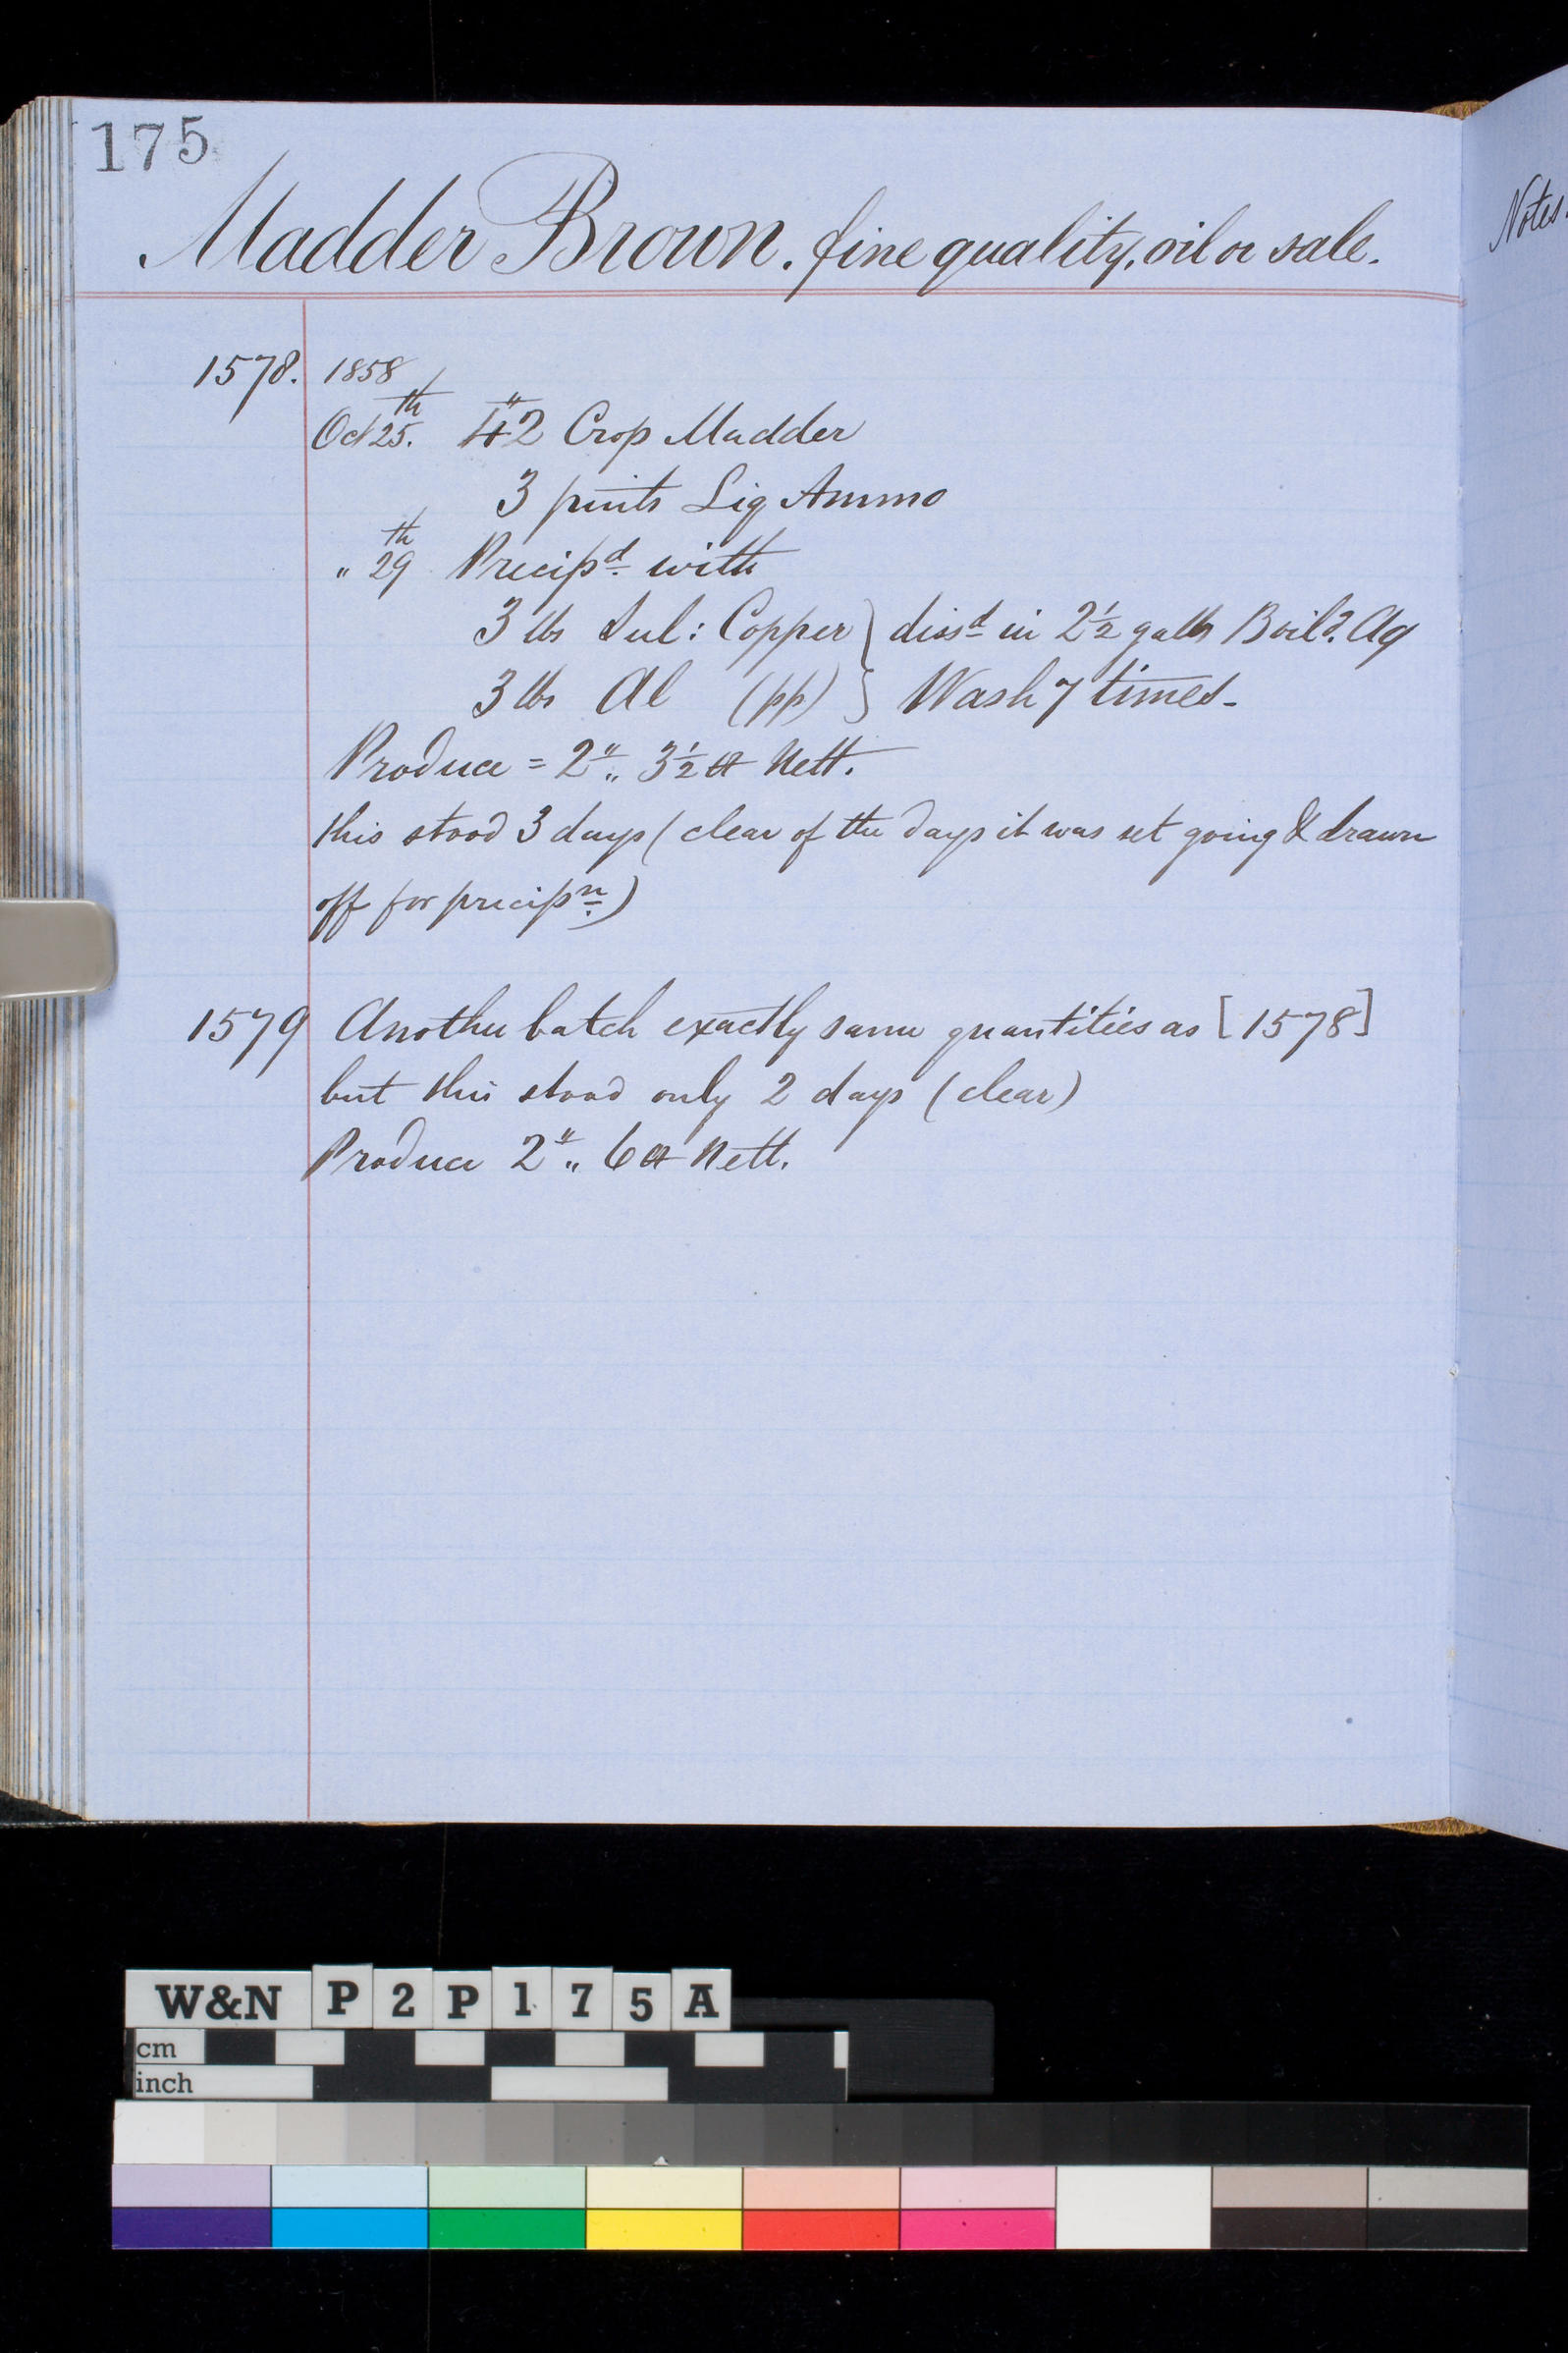 175
Madder Brown. fine quality, oil or sale.
Notes
1578. 1858
Oct 25.th 42 Crop Madder
3 pints Liq Ammo
" 29th Precipd. with
3 lbs Sul: Copper } dissd in 2½ galls Boilg. Aq
3 lbs Al (pp) } Wash 7 times -
Produce = 2 „ 3½ Nett.
this stood 3 days (clear of the days it was set going & drawn
off for precipn.)
1579 Another batch exactly same quantities as [1578]
but this stood only 2 days (clear)
Produce 2 „ 6 Nett.
W&N P2P175A
cm
inch